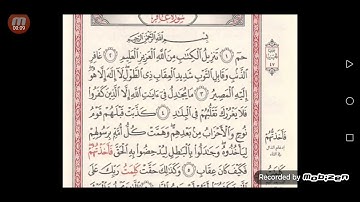 00:09
سُورَةُ غَافِرٍ
بِسْمِ اللَّهِ الرَّحْمَٰنِ الرَّحِيمِ
حمٓ ۝١ تَنزِيلُ ٱلْكِتَٰبِ مِنَ ٱللَّهِ ٱلْعَزِيزِ ٱلْعَلِيمِ ۝٢ غَافِرِ
ٱلذَّنۢبِ وَقَابِلِ ٱلتَّوْبِ شَدِيدِ ٱلْعِقَابِ ذِى ٱلطَّوْلِ لَآ إِلَٰهَ إِلَّا هُوَ
إِلَيْهِ ٱلْمَصِيرُ ۝٣ مَا يُجَٰدِلُ فِىٓ ءَايَٰتِ ٱللَّهِ إِلَّا ٱلَّذِينَ كَفَرُوا۟
فَلَا يَغْرُرْكَ تَقَلُّبُهُمْ فِى ٱلْبِلَٰدِ ۝٤ كَذَّبَتْ قَبْلَهُمْ قَوْمُ
نُوحٍ وَٱلْأَحْزَابُ مِنۢ بَعْدِهِمْ وَهَمَّتْ كُلُّ أُمَّةٍۭ بِرَسُولِهِمْ
لِيَأْخُذُوهُ وَجَٰدَلُوا۟ بِٱلْبَٰطِلِ لِيُدْحِضُوا۟ بِهِ ٱلْحَقَّ فَأَخَذتُّهُمْ
فَكَيْفَ كَانَ عِقَابِ ۝٥ وَكَذَٰلِكَ حَقَّتْ كَلِمَتُ رَبِّكَ عَلَى
فَأَخَذتُّهُمْ
Recorded by Mobizen